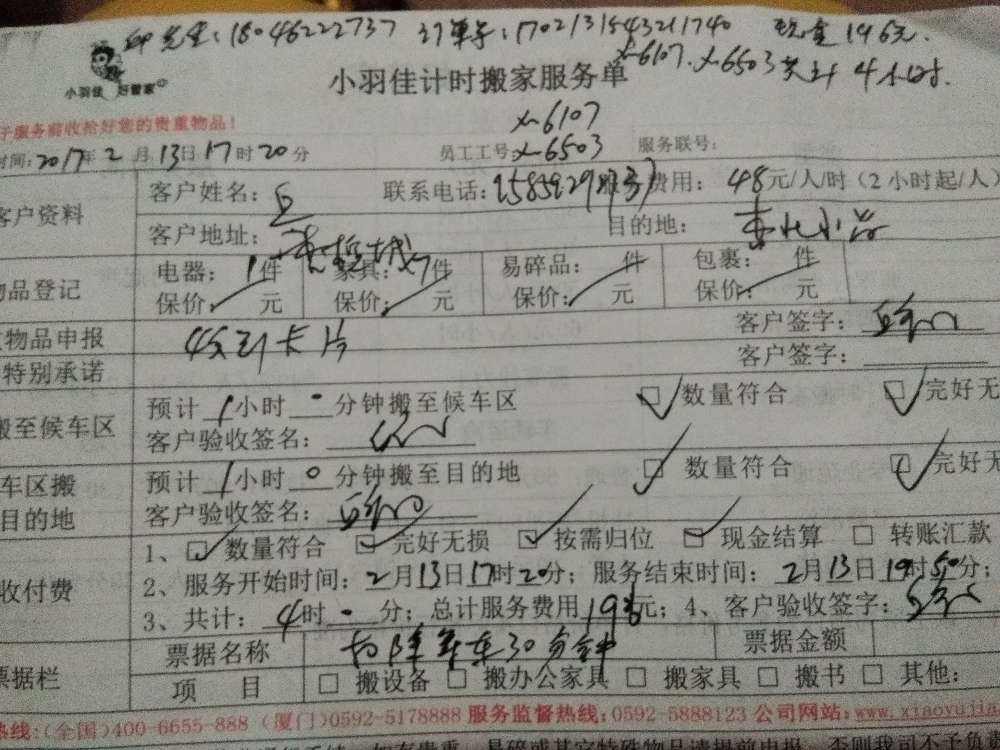 先生:18046222737 订单号:170213154321740 现金196元.
x-6107. x-6503共计4小时.
小羽佳 好管家
小羽佳计时搬家服务单
服务前收拾好您的贵重物品!
x-6107
时间:2017年2月13日17时20分 员工工号:x-6503 服务联号:
客户资料 客户姓名: 联系电话: 费用:48元/人/时(2小时起/人)
客户地址: 目的地:
物品登记 电器:1件 家具:7件 易碎品: 件 包裹: 件
保价: 元 保价: 元 保价: 元 保价: 元
物品申报 收到卡片 客户签字:
特别承诺 客户签字:
搬至候车区 预计1小时0分钟搬至候车区 数量符合 完好无
客户验收签名:
车区搬 预计1小时0分钟搬至目的地 数量符合 完好无
目的地 客户验收签名:
收付费 1、数量符合 完好无损 按需归位 现金结算 转账汇款
2、服务开始时间:2月13日17时20分;服务结束时间:2月13日19时50分;
3、共计:4时0分;总计服务费用196元;4、客户验收签字:
票据栏 票据名称 扣除乘车30分钟 票据金额
项目 搬设备 搬办公家具 搬家具 搬书 其他:
热线:(全国)400-6655-888(厦门)0592-5178888 服务监督热线:0592-5888123 公司网站:www.xiaoyujia